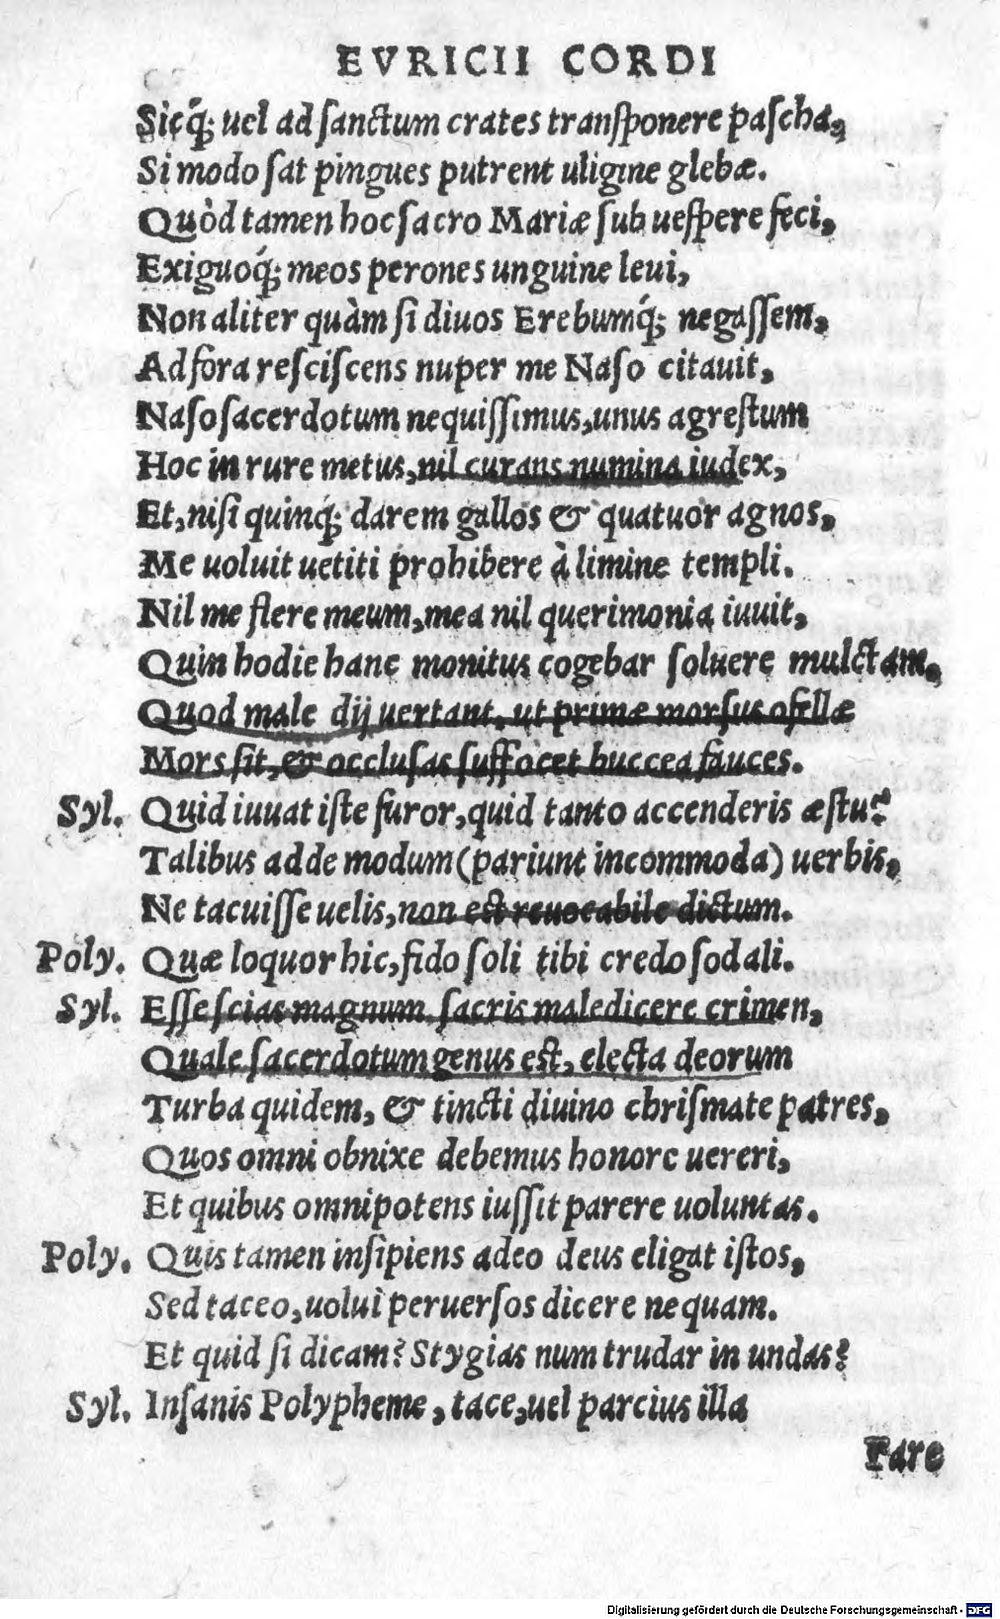 EVRICII CORDI
Sicq́; uel ad ſanctum crates tranſponere paſcha,
Si modo ſat pingues putrent uligine glebæ.
Quòd tamen hoc ſacro Mariæ ſub ueſpere feci,
Exiguoq́; meos perones unguine leui,
Non aliter quàm ſi diuos Erebumq́; negaſſem,
Ad fora reſciſcens nuper me Naſo citauit,
Naſo ſacerdotum nequiſſimus, unus agreſtum
Hoc in rure metus, nil curans numina iudex,
Et, niſi quinq́; darem gallos & quatuor agnos,
Me uoluit uetiti prohibere à limine templi.
Nil me flere meum, mea nil querimonia iuuit,
Quin hodie hanc monitus cogebar ſoluere mulctam,
Quod male dij uertant, ut primæ morſus ofellæ
Mors ſit, & occluſas ſuffocet buccea fauces.
Syl. Quid iuuat iſte furor, quid tanto accenderis æſtu?
Talibus adde modum (pariunt incommoda) uerbis,
Ne tacuiſſe uelis, non eſt reuocabile dictum.
Poly. Quæ loquor hic, fido ſoli tibi credo ſodali.
Syl. Eſſe ſcias magnum ſacris maledicere crimen,
Quale ſacerdotum genus eſt, electa deorum
Turba quidem, & tincti diuino chriſmate patres,
Quos omni obnixe debemus honore uereri,
Et quibus omnipotens iuſſit parere uoluntas.
Poly. Quis tamen inſipiens adeo deus eligat iſtos,
Sed taceo, uolui peruerſos dicere nequam.
Et quid ſi dicam? Stygias num trudar in undas?
Syl. Inſanis Polypheme, tace, uel parcius illa
Fare
Digitalisierung gefördert durch die Deutsche Forschungsgemeinschaft - DFG